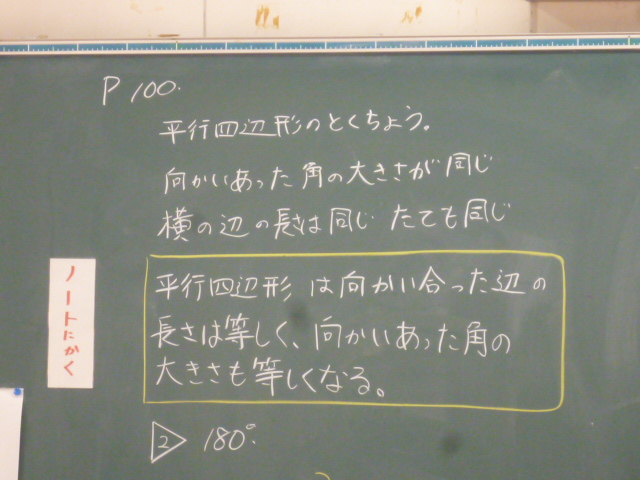 P 100.
平行四辺形のとくちょう。
向かいあった角の大きさが同じ
横の辺の長さは同じ たても同じ
ノートにかく
平行四辺形 は向かい合った辺の
長さは等しく、向かいあった角の
大きさも等しくなる。
2 180°.